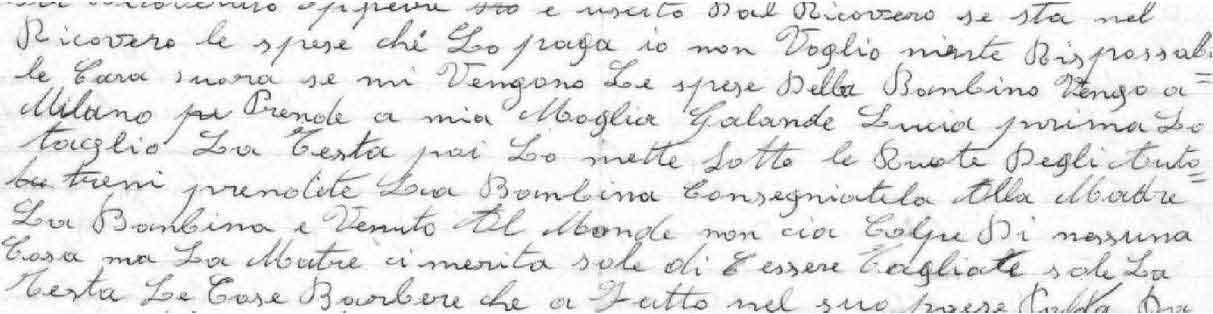 e uscito Dal Ricovero se sta nel
Ricovero le spese ché Lo paga io non Voglio niente Rispossabi
le Cara suora se mi Vengono Le spese Della Bambino Vengo a=
Milano pe Prende a mia Moglia Galande Lucia prima Lo
taglio La Testa poi Lo mette sotto le Ruote Degli Auto=
treni prendete La Bambina Consegniatela Alla Madre
La Bambina e Venuto Al Monde non cia Colpe Di nessuna
Cosa ma La Matre ci merita sole di essere Tagliate sole La
Testa Le Cose Barbere che a Fatto nel suo paese